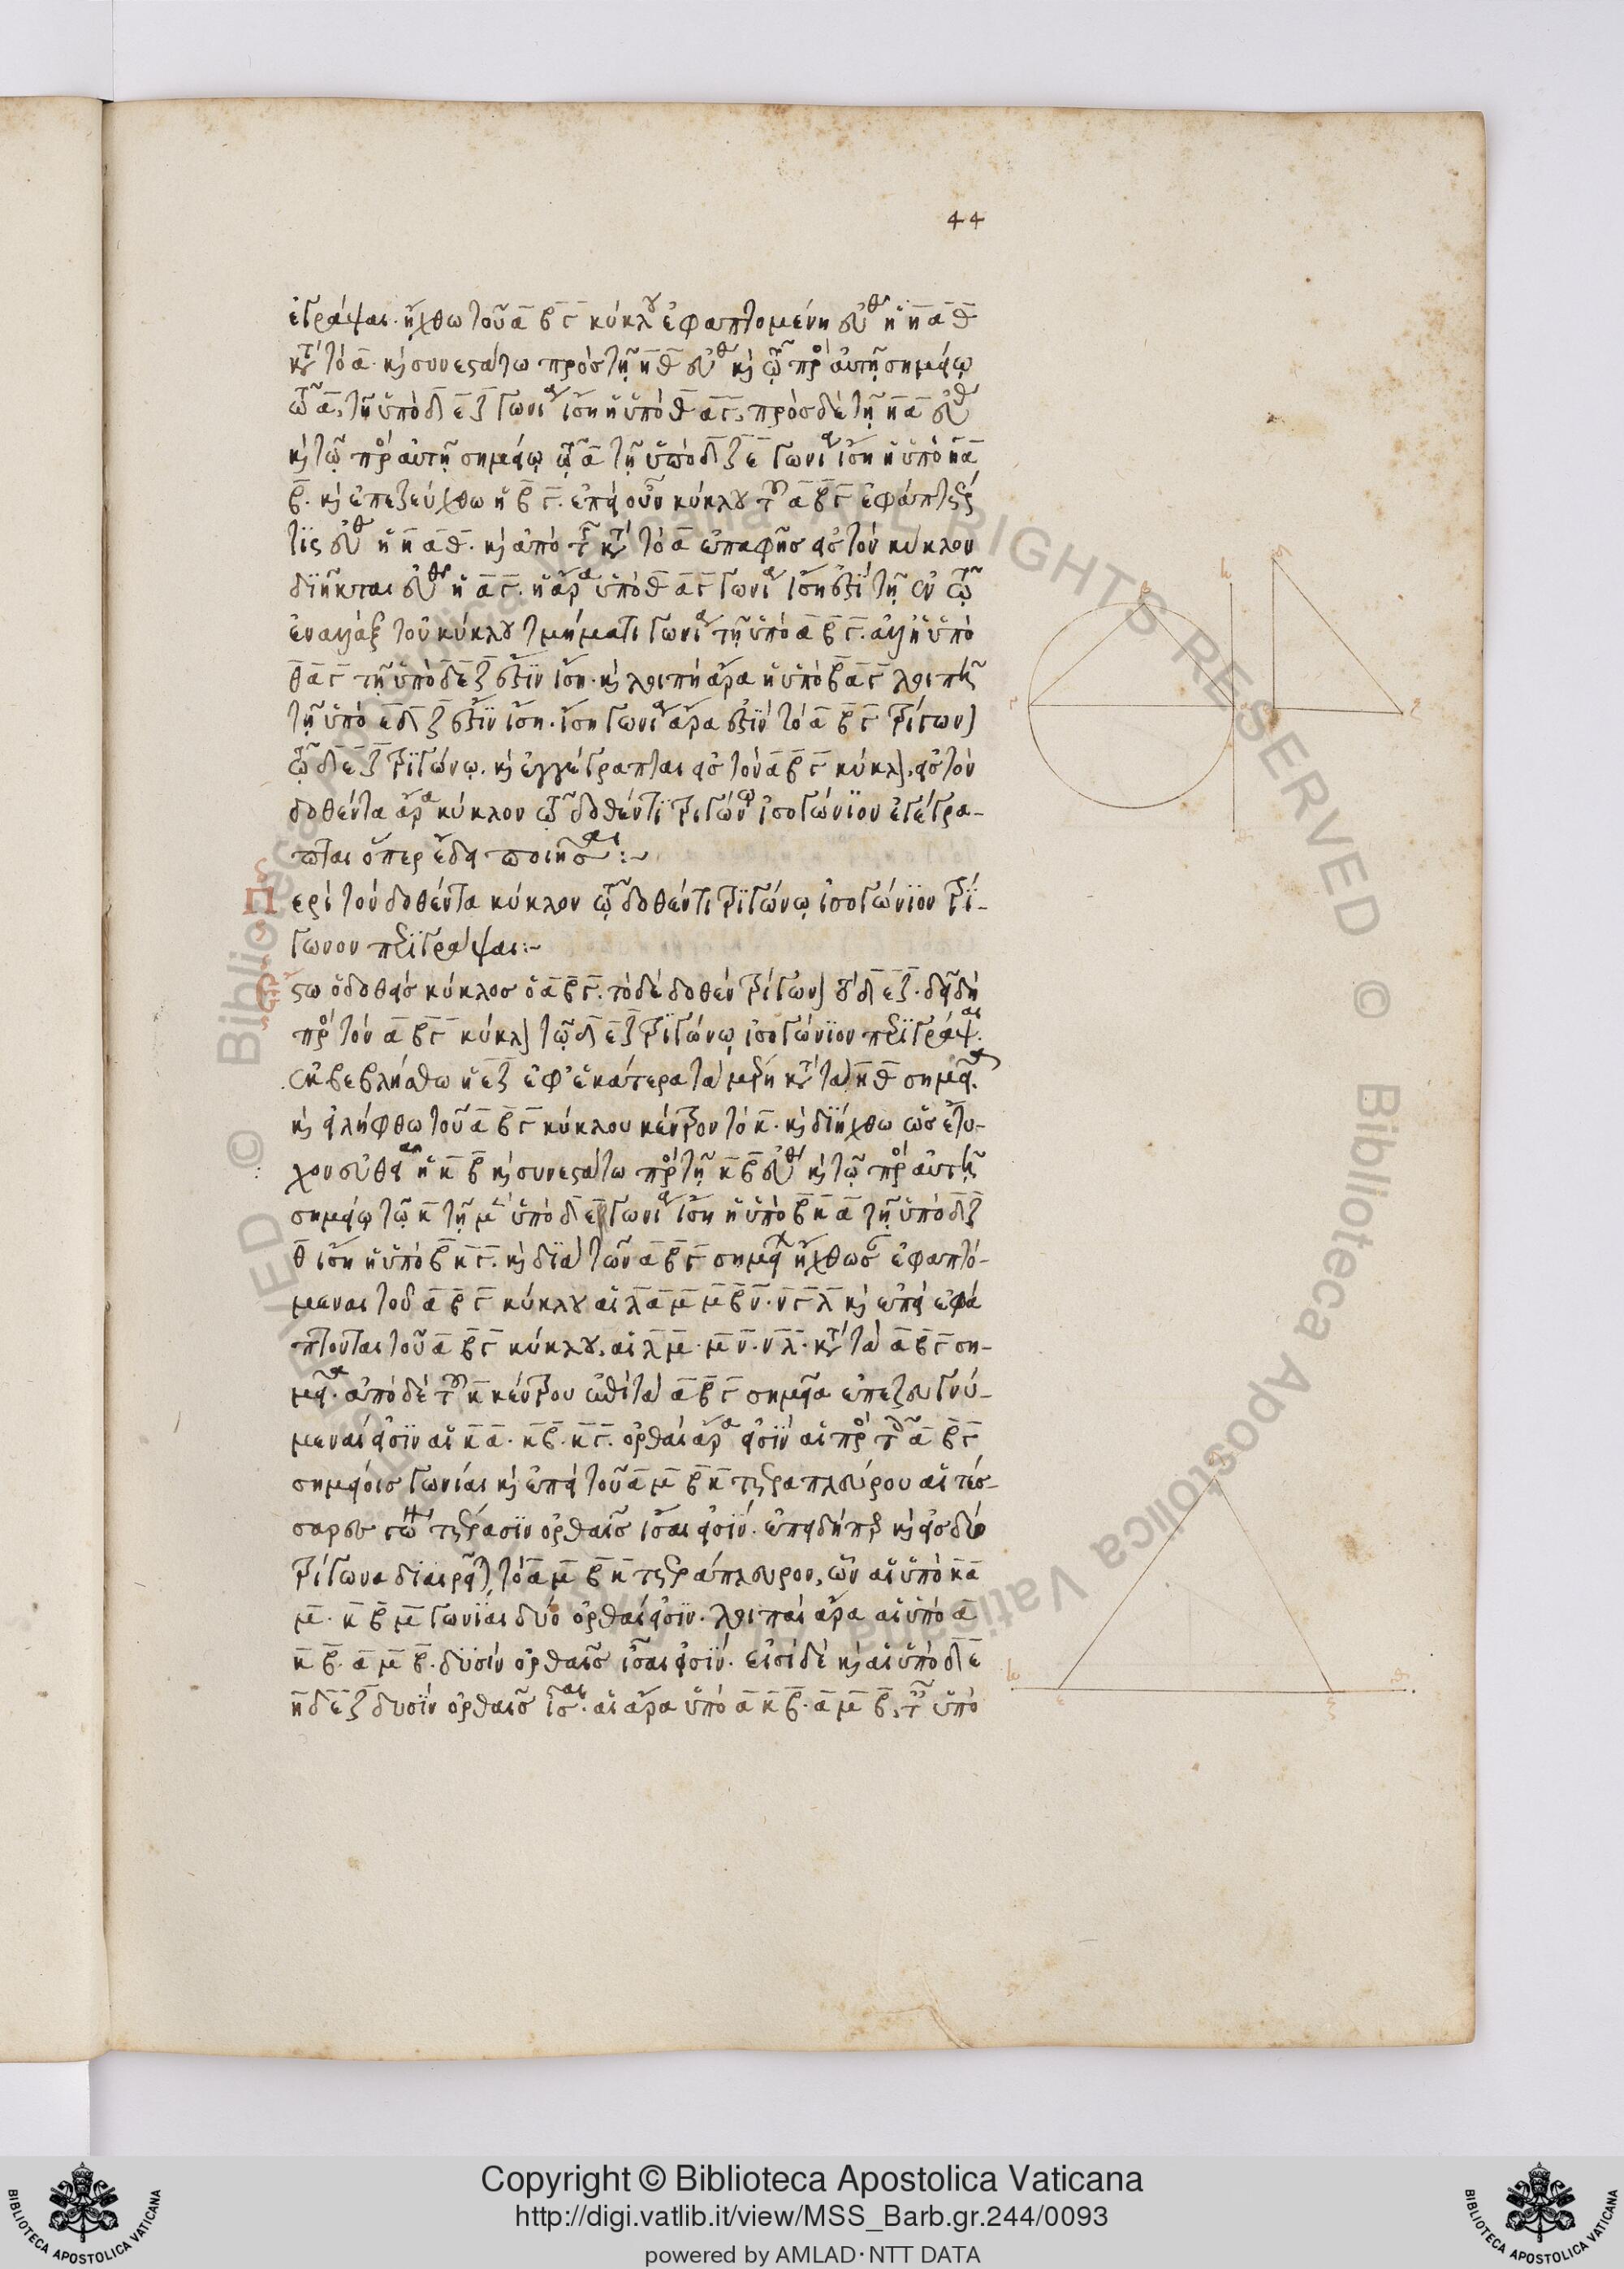 44
ἐγράψαι. ἤχθω τοῦ α β γ κύκλου ἐφαπτομένη εὐθ ἡ η α θ
κτ τὸ α. κ συνεστάτω πρὸς τῇ η θ εὐθ κ τῷ πρ αὐτῇ σημείῳ
τῷ α, τῇ ὑπὸ δ ε ζ γωνία ἴση ἡ ὑπὸ θ α γ, πρὸς δὲ τῇ η α εὐθ
κ τῷ πρ αὐτῇ σημείῳ τῷ α τῇ ὑπὸ δ ζ ε γωνία ἴση ἡ ὑπὸ η α
β. κ ἐπεζεύχθω ἡ β γ. ἐπεὶ οὖν κύκλου τοῦ α β γ ἐφάπτεταί
τις εὐθ ἡ η α θ. κ ἀπὸ τῆς κτ τὸ α ἐπαφῆς εἰς τὸν κύκλον
διῆκται εὐθ ἡ α γ. ἡ ἄρα ὑπὸ θ α γ γωνία ἴση ἐστὶ τῇ ἐν τῷ
ἐναλλὰξ τοῦ κύκλου τμήματι γωνία τῇ ὑπὸ α β γ. ἀλλ ἡ ὑπὸ
θ α γ τῇ ὑπὸ δ ε ζ ἐστὶν ἴση. κ λοιπὴ ἄρα ἡ ὑπὸ β α γ λοιπῇ
τῇ ὑπὸ ε δ ζ ἐστὶν ἴση. ἰσογώνιον ἄρα ἐστὶν τὸ α β γ τρίγωνον
τῷ δ ε ζ τριγώνῳ. κ ἐγγέγραπται εἰς τὸν α β γ κύκλον, εἰς τὸν
δοθέντα ἄρα κύκλον τῷ δοθέντι τριγώνῳ ἰσογώνιον ἐγέγρα-
πται ὅπερ ἔδει ποιῆσαι:~
Περὶ τὸν δοθέντα κύκλον τῷ δοθέντι τριγώνῳ ἰσογώνιον τρί-
γωνον περιγράψαι:~
Ἔστω ὁ δοθεὶς κύκλος ὁ α β γ. τὸ δὲ δοθὲν τρίγωνον τὸ δ ε ζ. δεῖ δὴ
πρ τὸν α β γ κύκλον τῷ δ ε ζ τριγώνῳ ἰσογώνιον περιγράψαι.
ἐκβεβλήσθω ἡ ε ζ ἐφ ἑκάτερα τὰ μέρη κτ τὰ η θ σημεῖα.
κ εἰλήφθω τοῦ α β γ κύκλου κέντρον τὸ κ. κ διήχθω ὡς ἔτυ-
χον εὐθεῖα ἡ κ β κ συνεστάτω πρ τῇ κ β εὐθ κ τῷ πρ αὐτῇ
σημείῳ τῷ κ τῇ μ ὑπὸ δ ε γωνία ἴση ἡ ὑπὸ β κ α τῇ ὑπὸ δ ζ
θ ἴση ἡ ὑπὸ β κ γ. κ διὰ τῶν α β γ σημεί ἤχθωσ ἐφαπτό-
μεναι τοῦ α β γ κύκλου αἱ λ α μ μ β ν. ν γ λ κ ἐπεὶ ἐφά
πτονται τοῦ α β γ κύκλου, αἱ λ μ. μ ν. ν λ. κτ τὰ α β γ ση-
μεῖα. ἀπὸ δὲ τοῦ κ κέντρου ἐπὶ τὰ α β γ σημεῖα ἐπεζευγνύ-
μεναί εἰσϊν αἱ κ α. κ β. κ γ. ὀρθαὶ ἄρα εἰσϊν αἱ πρ τοῖς α β γ
σημείοις γωνίαι κ ἐπεὶ τοῦ α μ β κ τετραπλεύρου αἱ τέσ-
σαρες γω τέτρασϊν ὀρθαῖς ἴσαι εἰσϊν. ἐπειδήπερ κ εἰς δύο
τρίγωνα διαιρεῖτ τὸ α μ β κ τετράπλευρον, ὧν αἱ ὑπὸ κ α
μ. κ β μ γωνίαι δύο ὀρθαί εἰσϊν. λοιπαὶ ἄρα αἱ ὑπὸ α
κ β. α μ β. δυσὶν ὀρθαῖς ἴσαι εἰσϊν. εἰσὶ δὲ κ αἱ ὑπὸ δ ε
η δ ε ζ δυσϊν ὀρθαῖς ἴσαι. αἱ ἄρα ὑπὸ α κ β. α μ β, τ ὑπὸ
Copyright © Biblioteca Apostolica Vaticana
http://digi.vatlib.it/view/MSS_Barb.gr.244/0093
powered by AMLAD·NTT DATA